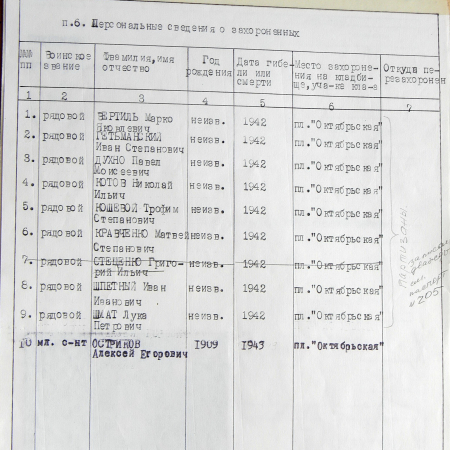 п.6. Персональные сведения о захороненных
№№ пп
Воинское звание
Фамилия, имя отчество
Год рождения
Дата гибели или смерти
Место захоронения на кладбище, уч-ка кл-а
Откуда перезахоронен
1 2 3 4 5 6 7
1. рядовой ВЕРТИЛЬ Марко Яковлевич неизв. 1942 пл."Октябрьская"
2. рядовой ГЕТЬМАНСКИЙ Иван Степанович неизв. 1942 пл."Октябрьская"
3. рядовой ДУХНО Павел Моисеевич неизв. 1942 пл."Октябрьская"
4. рядовой КОТОВ Николай Ильич неизв. 1942 пл."Октябрьская"
5. рядовой КОШЕВОЙ Трофим Степанович неизв. 1942 пл."Октябрьская"
6. рядовой КРАВЧЕНКО Матвей Степанович неизв. 1942 пл."Октябрьская"
7. рядовой СТЕЦЕНКО Григорий Ильич неизв. 1942 пл."Октябрьская"
8. рядовой ШПЕТНЫЙ Иван Иванович неизв. 1942 пл."Октябрьская"
9. рядовой ШМАТ Лука Петрович неизв. 1942 пл."Октябрьская"
10 мл. с-нт ОСТРИКОВ Алексей Егорович 1909 1943 пл."Октябрьская"
партизаны
паспорт
№ 205